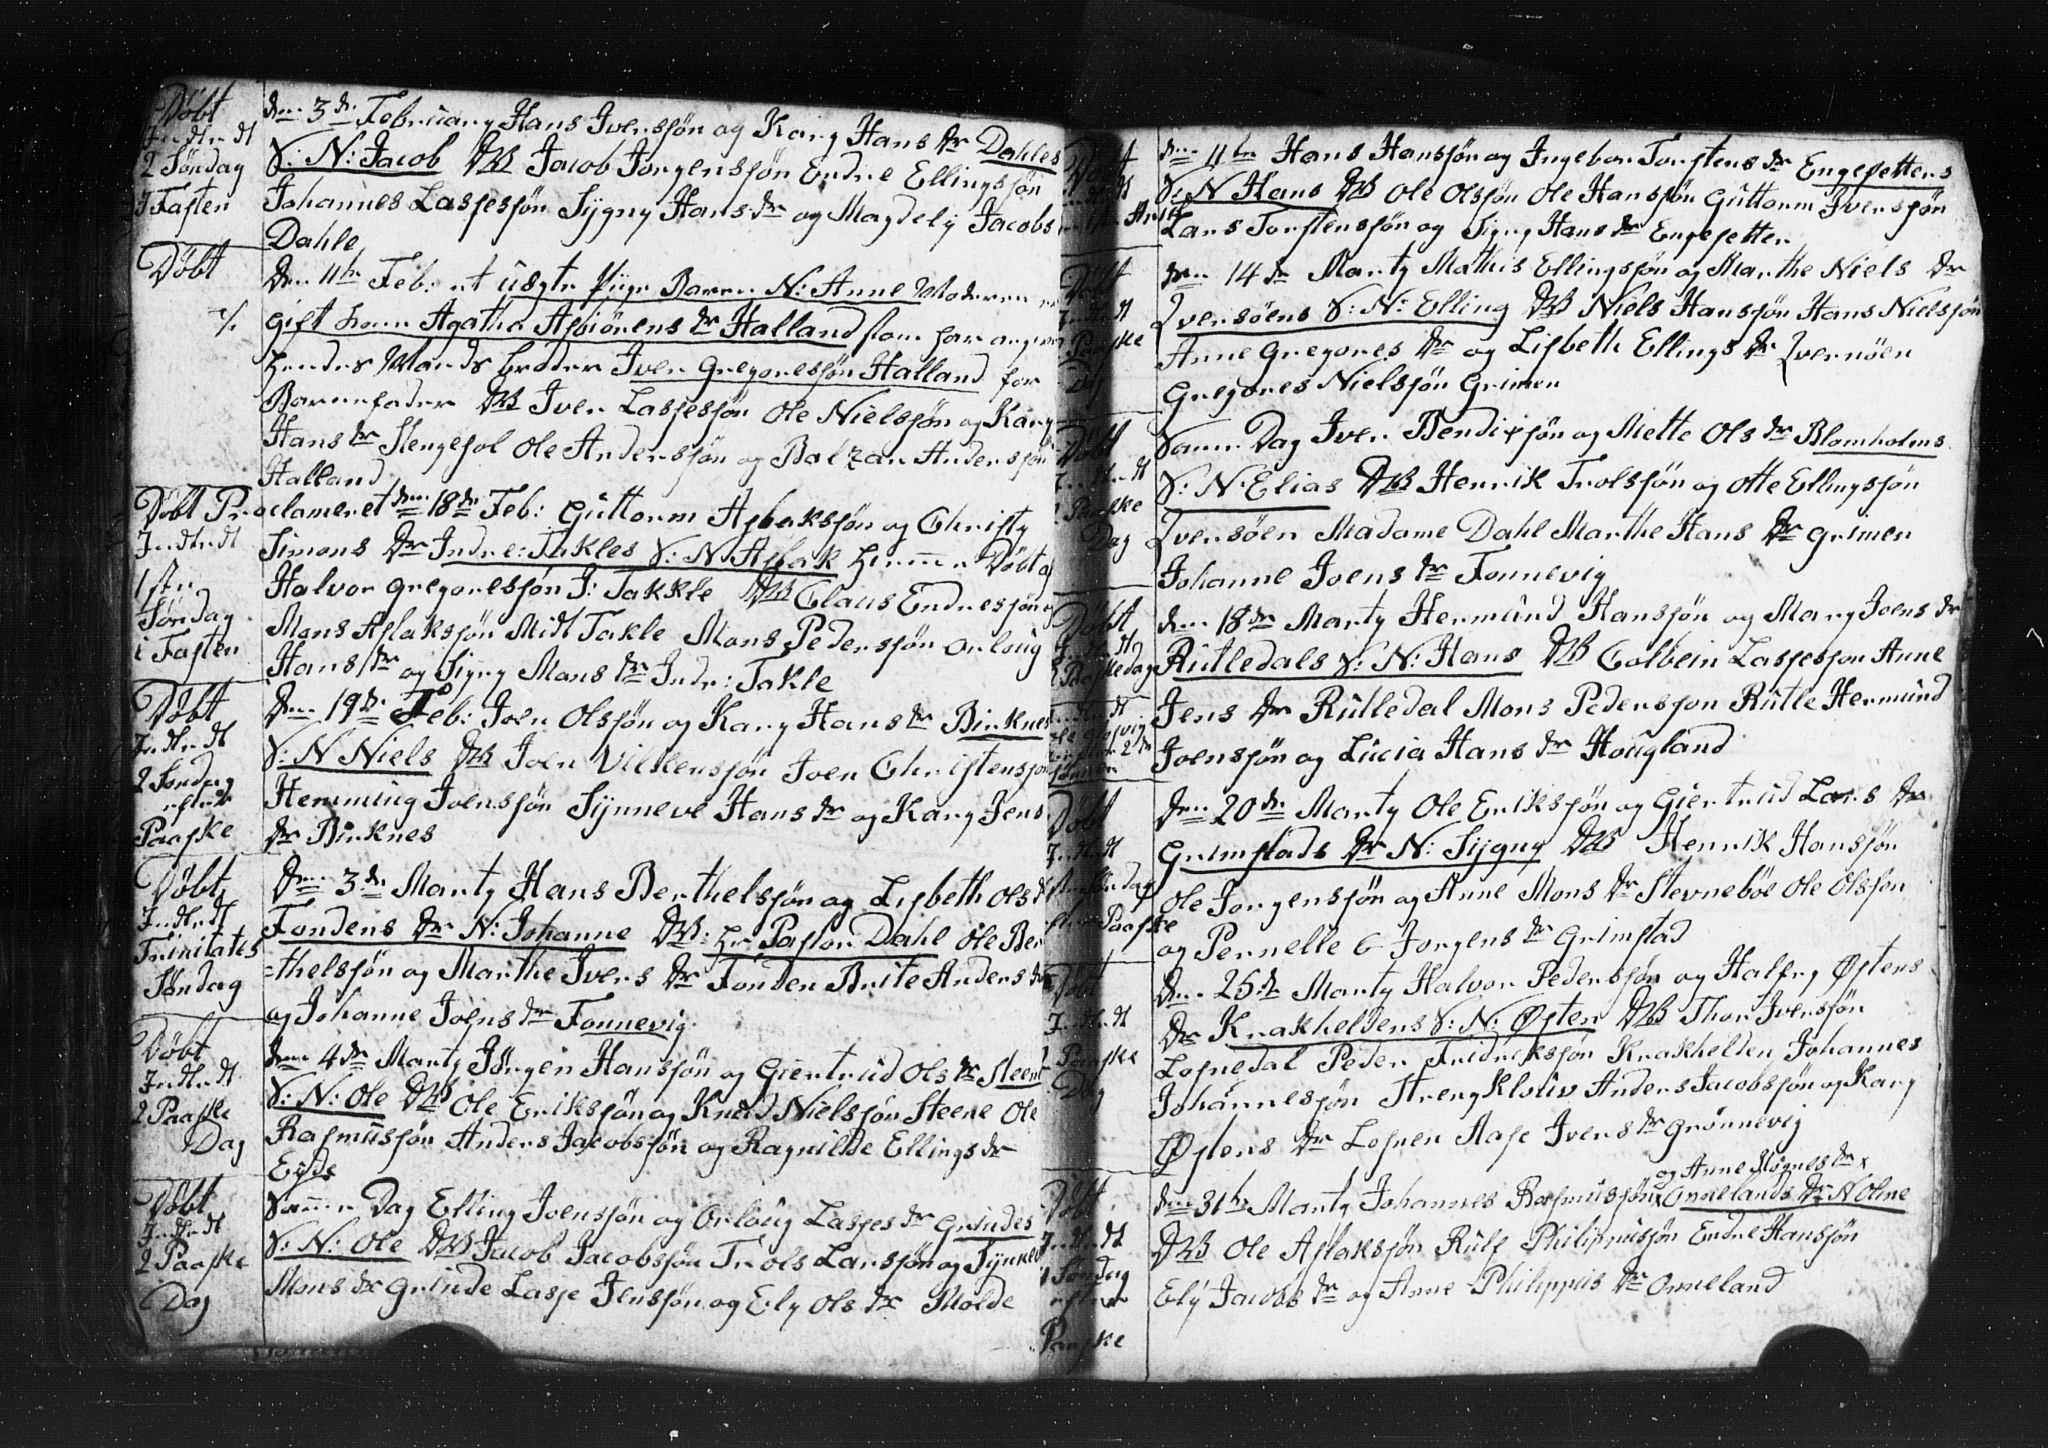 Døbt
Indledt
2 Søndag
I Fasten
den 3de February Hans Iversøn og Kary Hans dr Dahles
S: N: Jacob DW Jacob Jørgensøn Endre Ellingssøn
Johannes Lassesøn Sygny Hans dr og Magdely Jacobs
Dahle
Døbt
Den 11te Feb: et üægte Pige Barn N: Anne Moderen er
gift kone Agatha Asbiørens dr Halland som har angiven
hendes Mands broder Iver Gregoresøn Halland for
Barnefader DW Iver Lassesøn Ole Nielssøn og Kary
Hans dr Stengesol Ole Anderssøn og Balzar Anderssøn
Halland
Døbt
Indledt
1ste
Søndag
i Fasten
Proclameret den 18de Feb: Guttorm Asbaksøn og Christy
Simons dr Indre: Takles S: N Asbak hiemme Døbt af
Halvor gregoresøn I: Takkle DW Claus Endresøn og
Mons Aslaksøn Midt Takle Mons Pedersøn orloüg
Hans dr og Signy Mons dr Indr: Takle
Døbt
Indledt
2 Søndag
efter
Paaske
Den 19de Feb: Joen Olsøn og Kary Hans dr Birknes
S: N Niels DW Joen Villensøn Joen Christensøn
Hemming Joensøn Synneve Hans dr og Kary Jens
dr Birknes
Døbt
Indledt
Trinitates
Søndag
Den 3de Marty Hans Berthelsøn og Lisbeth Ols dr
Fondens dr N: Johanne DW: hr Pastor Dahl Ole Ber
=thelsøn og Marthe Ivers dr Fonden Brite Anders dr
og Johanne Joens dr Fonnevig
Døbt
Indledt
2 Paaske
Dag
den 4de Marty Jørgen Hansøn og Giertrud Ols dr Steene
S: N: Ole DW Ole Eriksøn og Knud Nielsøn Steene Ole
Rasmusøn Anders Jacobsøn og Ragnilde Ellings dr
Eyde
Døbt
Indledt
2 Paaske
Dag
Samme Dag Elling Joensøn og Orloüg Lasses dr Grindes
S: N: Ole DW Jacob Jacobsøn Trols Larsøn og Synneve
Mons dr Grinde Lasse Jensøn og Ely Ols dr Molde
Døbt
den 11te Hans Hansøn og Ingebor Torstens dr Engesetters
S: N Hans DW Ole Olsøn Ole Hansøn Guttorm Iversøn
Lars Torstensøn og Signy Hans dr Engesetter
Døbt
Indledt
Paaske
Dag
den 14de Marty Mathis Ellingsøn og Marthe Niels dr
Qversøens S: N: Elling DW Niels Hansøn Hans Nielsøn
Anne Gregores dr og Lisbeth Ellings dr Qversøen
Gregores Nielsøn Grimen
Døbt
Indledt
Paaske
Dag
Samme Dag Iver Bendixøn og Mette Ols dr Blomholms
S: N: Elias DW Henrik Trolsøn og Otte Ellingsøn
Qversøen Madame Dahl Marthe Hans dr Grimen
Johanne Joens dr Fonnevig
Døbt
Indledt
2 Paaskedag
den 18de Marty Hermund Hansøn og Mary Joens dr
Rutledals S: N: Hans DW Colbein Lassesøn Anne
Jens dr Rutledal Mons Pedersøn Rutle Hermund
Joensøn og Lucia Hans dr Hougland
Døbt
Indledt
Søndag
efter Paaske
Den 20de Marty Ole Eriksøn og Giertrud Lars dr
Grimstads dr N: Sygny DW Henrik Hansøn
Ole Jorgensøn og Anne Mons dr Stevnebøe Ole Olsøn
og Pernelle C Jorgens dr Grimstad
Døbt
Indledt
Paaske
Dag
den 25de Marty Halvor Pedersøn og Halfry Østens
dr Knakheldens S: N: Østen DW Thor Iversøn
Losnedal Peder Fridriksøn Knakhelden Johannes
Johannesøn Strengklouv Anders Jacobsøn og Kary
Østens dr Losnen Aase Ivers dr Grønnevig
Døbt
Indledt
1 Søndag
efter
Paaske
og Anne Mognes dr x
den 31te Marty Johannes Rasmusøn x Onnelands dr N Oline
DW Ole Aslaksøn Rulf Philippusøn Endre Hansøn
Ely Jacobs dr og Anne Philippus dr Onneland